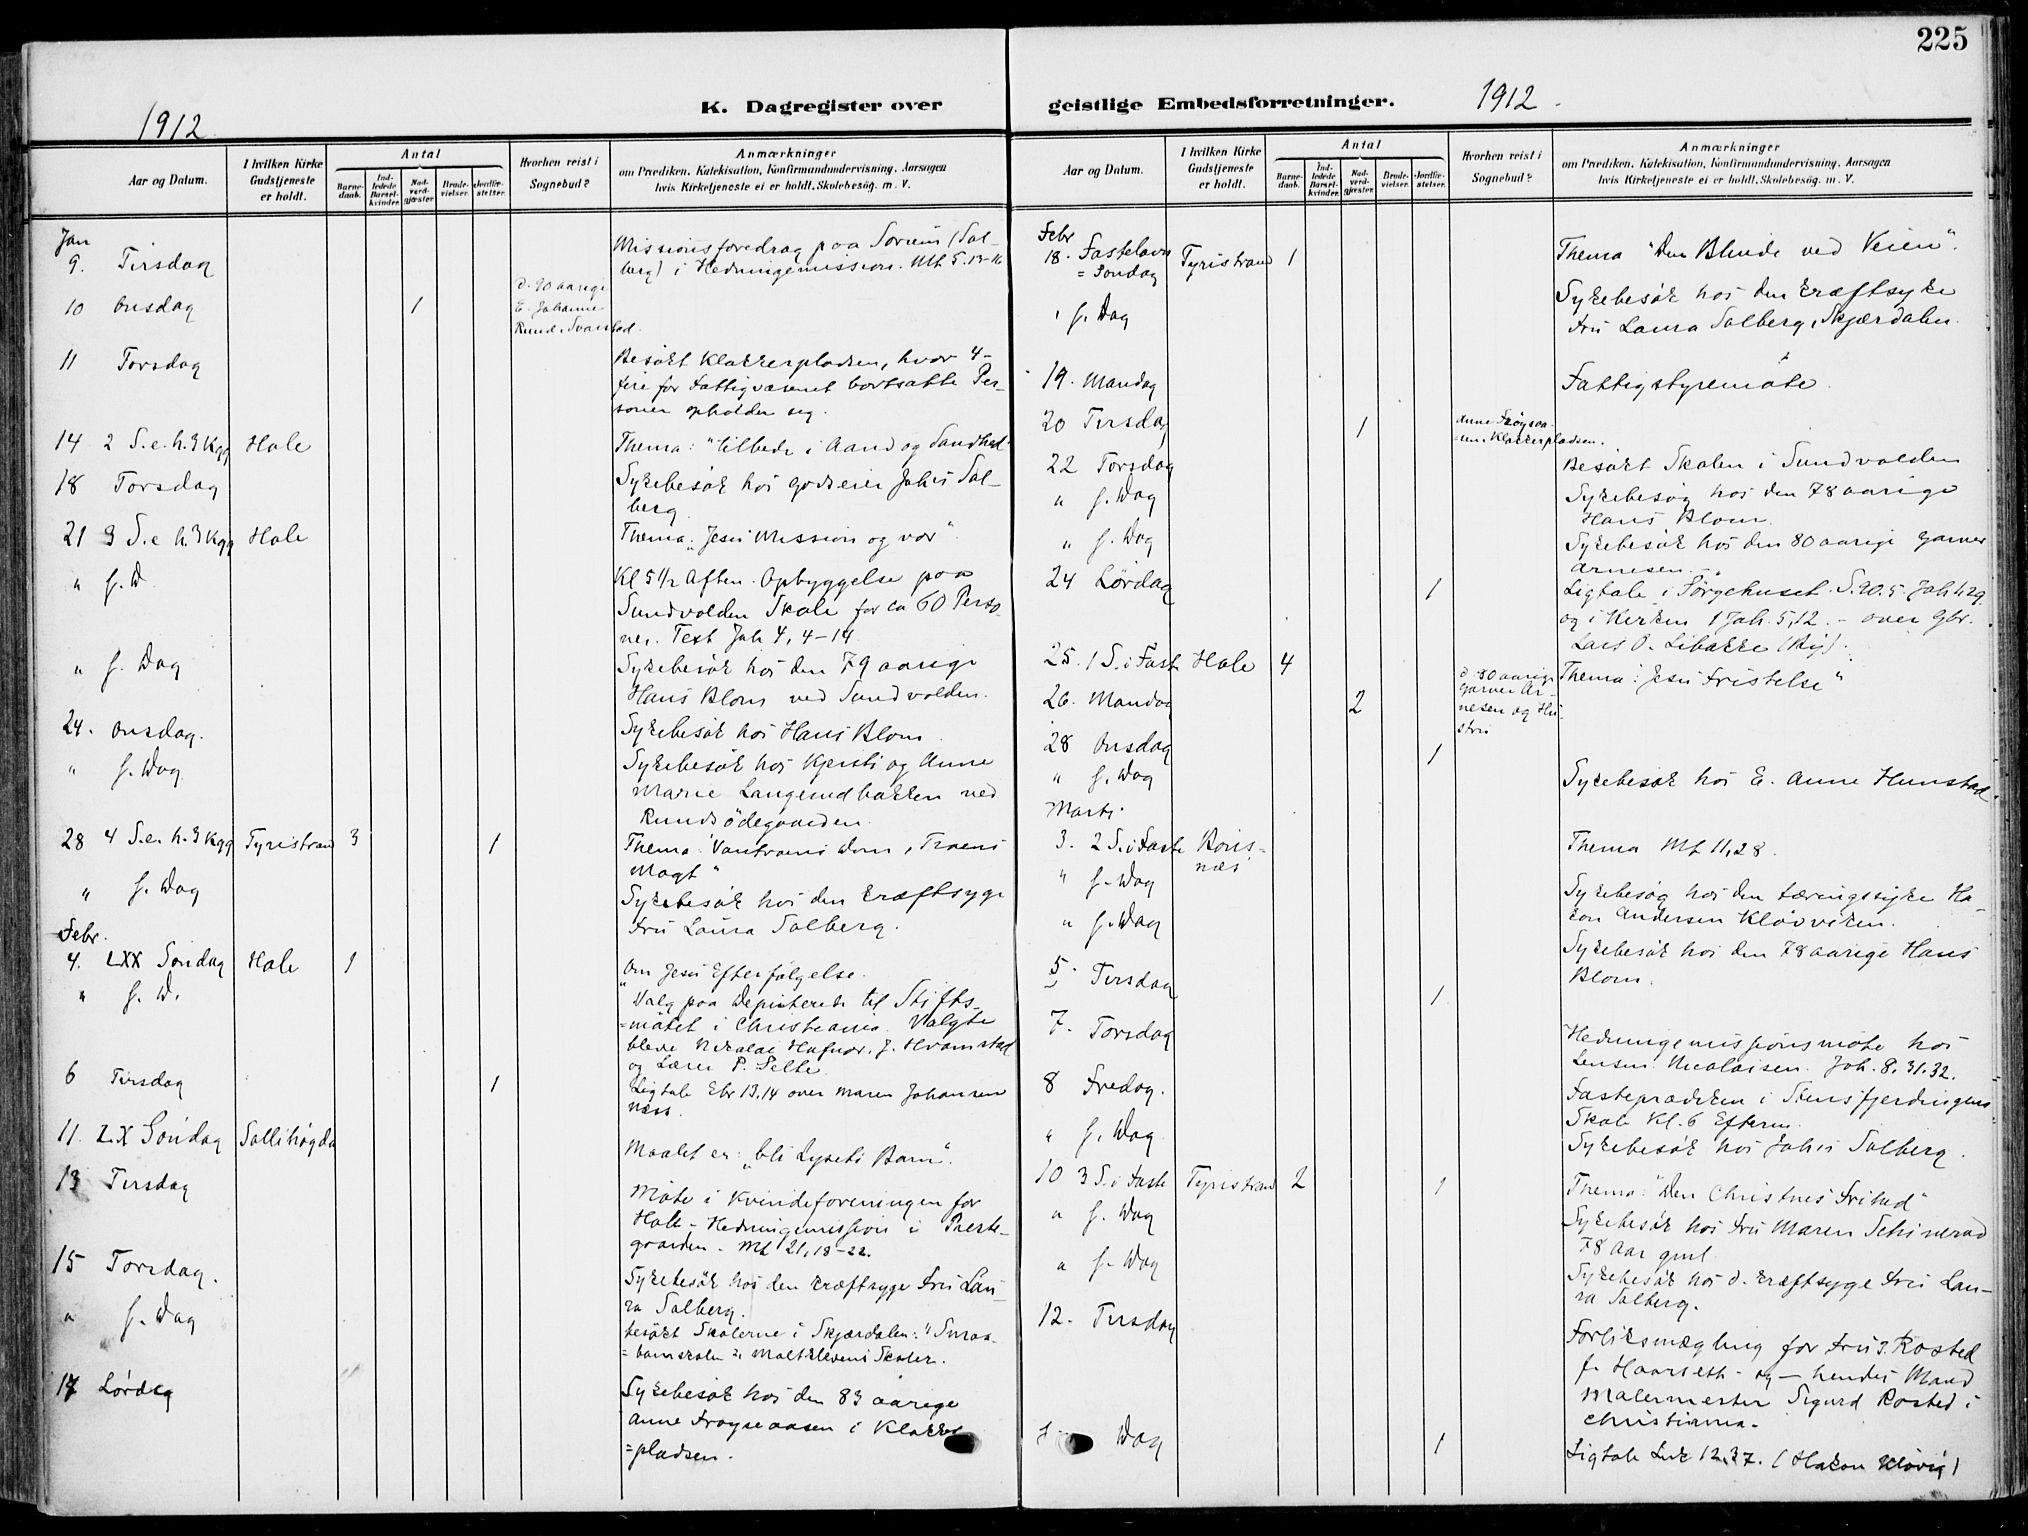 225
1912
K. Dagregister over
geistlige Embedsforretninger.
1912
Aar og Datum.
I hvilken Kirke Gudstjeneste er holdt.
Antal
Barne-daab.
Ind-ledede Barsel-kvinder.
Nad-verd-gjæster.
Brude-vielser.
Jordfæ-stelser.
Hvorhen reist i Sognebud?
Anmærkninger
om Prædiken, Katekisation, Konfirmandundervisning, Aarsagen
hvis Kirketjeneste ei er holdt, Skolebesøg, m. V.
Jan
9. Tirsdag
Missionsforedrag paa Sørum (Sol-
berg) i Hedningemission. Mt 5.13-16
10 Onsdag 1
d. 90 aarige
E. Johanne
Rund. Svarstad.
11 Torsdag
Besøkt Klokkerpladsen, hvor 4-
fire for Fattigvæsenet bortsatte Per-
soner opholder seg.
14 2 S.e.h.3 Kgg Hole
Thema: "Tilbede i Aand og Sandhed"
18 Torsdag
Sykebesøk hos godseier Johs Sol-
berg
21 3 S.e h.3 Kgg Hole
Thema: "Jesu Mission og vor".
" s. D
Kl 5 1/2 Aften. Opbyggelse paa
Sundvolden Skole for ca 60 Perso
ner. Text Joh 4, 4-14.
" s. Dag
Sykebesøk hos den 79 aarige
Hans Blom ved Sundvolden.
24. Onsdag.
Sykebesøk hos Hans Blom.
" s. Dag
Sykebesøk hos Kjersti og Anne
Marie Langerudbakken ved
Rundsødegaarden.
28 4 S.e. h.3 Kgg Tyristrand 3 1
Thema: Vantroens Dom, Troens
Magt"
" s. Dag
Sykebesøk hos den kræftsyge
Fru Laura Solberg.
Febr.
4. LXX Søndag Hole 1
Om Jesu Efterfølgelse.
" s. D.
Valg paa Deputerede til Stifts-
=møtet i Christiania. Valgte
bleve Nikolai Hafnor, J. Hvamstad
og Lærer P. Selte.
6 Tirsdag 1
Ligtale Ebr 13.14 over Maren Johansen
Næss.
11. LX Søndag Sollihøgda
Maalet er: "bli Lysets Barn".
13 Tirsdag
Møte i Kvindeforeningen for
Hole-Hedningemission i Preste-
gaarden. Mt 21, 18-22.
15 Torsdag.
Sykebesøk hos den kræftsyge Fru Lau-
ra Solberg.
" s. Dag
besøkt Skolerne i Skjærdalen: "Smaa-
=barnskolen og Maltklevens Skoler.
17 Lørdag
Sykebesøk hos den 83 aarige
Anne Frøyseaasen i Klokker
=pladsen.
Aar og Datum.
I hvilken Kirke Gudstjeneste er holdt.
Antal
Barne-daab.
Ind-ledede Barsel-kvinder.
Nad-verd-gjæster.
Brude-vielser.
Jordfæ-stelser.
Hvorhen reist i Sognebud?
Anmærkninger
om Prædiken, Katekisation, Konfirmandundervisning, Aarsagen
hvis Kirketjeneste ei er holdt, Skolebesøg, m. V.
Febr
18. Fastelavn
= Søndag Tyristrand 1
Thema "Den Blinde ved Veien".
" s. Dag
Sykebesøk hos den kræftsyke
Fru Laura Solberg, Skjærdalen.
19. Mandag
Fattigstyremøte.
20 Tirsdag 1
Anne Frøysaa-
=sen Klokkerpladsen.
22 Torsdag
Besøkt Skolen i Sundvolden
" s. Dag
Sykebesøg hos den 78 aarige
Hans Blom.
" s. Dag
Sykebesøk hos den 80 aarige Garver
Arnesen.
24 Lørdag 1
Ligtale i Sørgehuset. S.90.5. Joh 4.29.
og i Kirken 1 Joh. 5,12. - over Gbr.
Lars O. Libakke (By).
25. 1 S. i Faste Hole 4
Thema: Jesu Fristelse"
26. Mandag 2
d. 80 aarige
Garver Ar-
nesen og Hu-
stru
28 Onsdag 1
" s. Dag
Sykebesøk hos E. Anne Hunstad.
Marts.
3. 2 S. i Faste Bøns-
næs
Thema Mt 11,28.
" s. Dag
Sykebesøg hos den tæringssyke Ha-
kon Andersen Kløvviken.
" s. Dag
Sykebesøk hos den 78 aarige Hans
Blom.
5. Tirsdag 1
7. Torsdag
Hedningemissionsmøte hos
Lensm. Nicolaisen. Joh. 8,31.32.
8 Fredag.
Fasteprædiken i Stensfjerdingens
Skole Kl. 6 Efterm.
" s. Dag
Sykebesøk hos Johs Solberg.
10 3 S. i Faste Tyristrand 2 1
Thema: "Den Christnes Frihed"
" s. Dag
Sykebesøk hos Fru Maren
78 Aar gml.
" s. Dag
Sykebesøk hos d. kræftsyge Fru Lau-
ra Solberg.
12. Tirsdag
Forliksmægling for Fru J. Rosted
f. Haarseth - og - hendes Mand
Malermester Sigurd Rosted i
Christiania.
s. Dag 1
Ligtale Luk 12.37. (Hakon Kløvig)